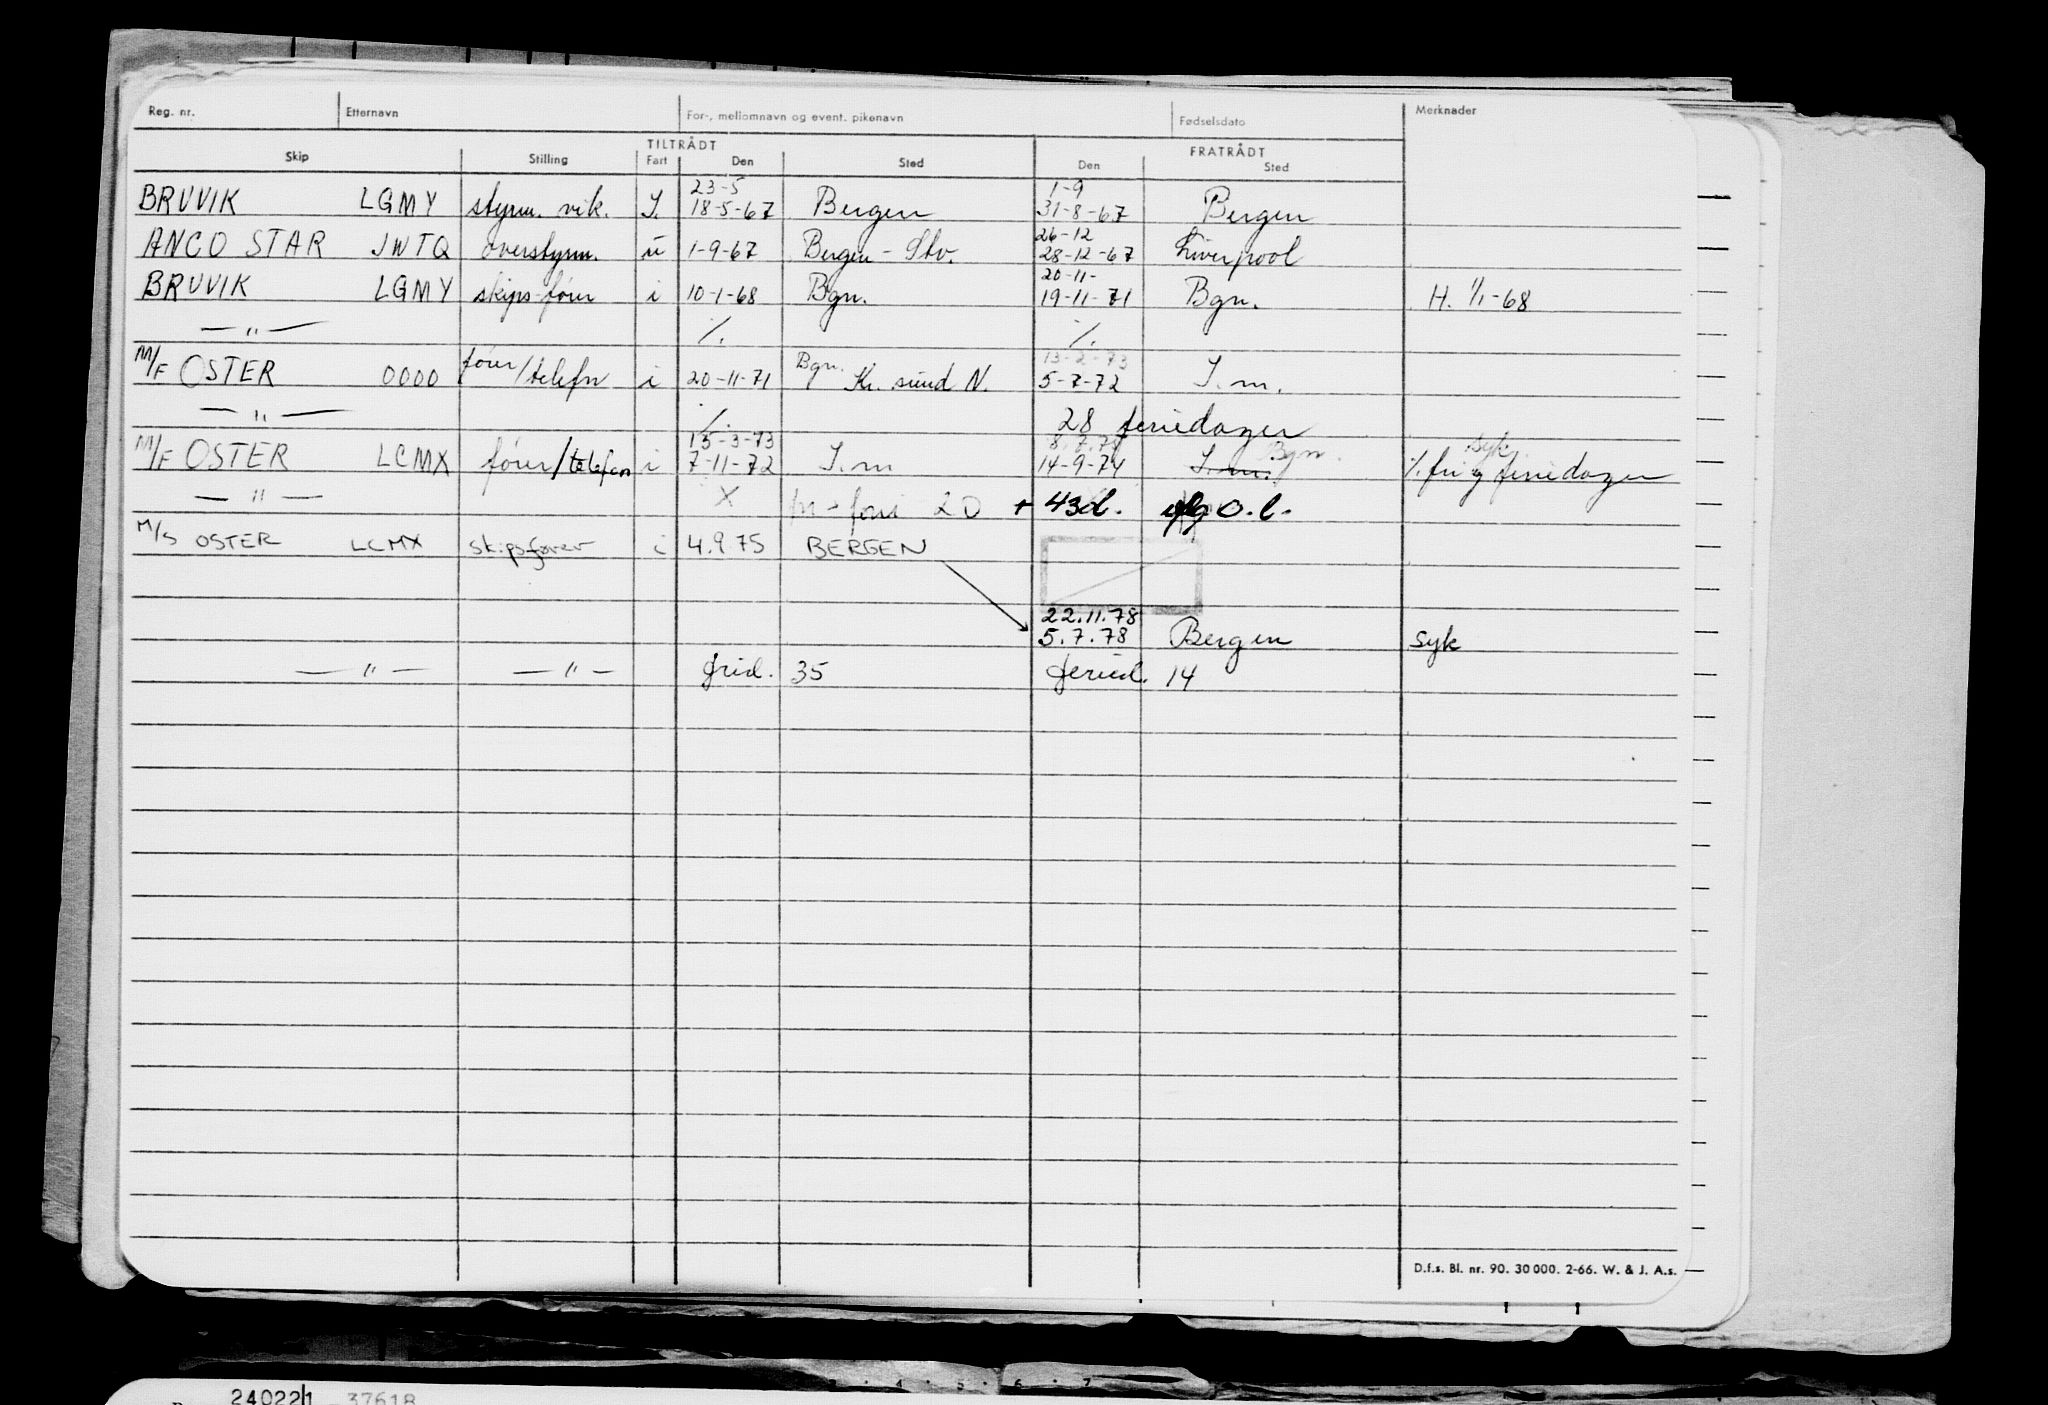 Reg. nr. Etternavn For-, mellomnavn og event. pikenavn Fødselsdato Merknader
TILTRÅDT FRATRÅDT
Skip Stilling Fart Den Sted Den Sted
23-5 1-9
BRUVIK LGMY styrm. vik. I. 18-5-67 Bergen 31-8-67 Bergen
26-12
ANCO STAR JWTQ overstyrm. u 1-9-67 Bergen - Stv. 28-12-67 Liverpool
20-11-
BRUVIK LGMY skips fører i 10-1-68 Bgn. 19-11-71 Bgn. H. 1/1-68
— " — /. /.
13-2-73
M/F OSTER 0000 fører/telefn i 20-11-71 Bgn. Kr. sund N. 5-7-72 I.m.
— " — /. 28 feriedager
15-3-73 8.7.75 syk
M/F OSTER LCMX fører/telefon i 7-11-72 I.m 14-9-74 I.m. Bgn. /. fri og feriedager
— " — X 20 + 43d. o.l.
M/S OSTER LCMX skipsfører i 4.9.75 BERGEN
22.11.78
5.7.78 Bergen syk
— " — — " — frid. 35 feried. 14
D.f.s. Bl. nr. 90. 30 000. 2-66. W. & J. A.s.
240221 37618